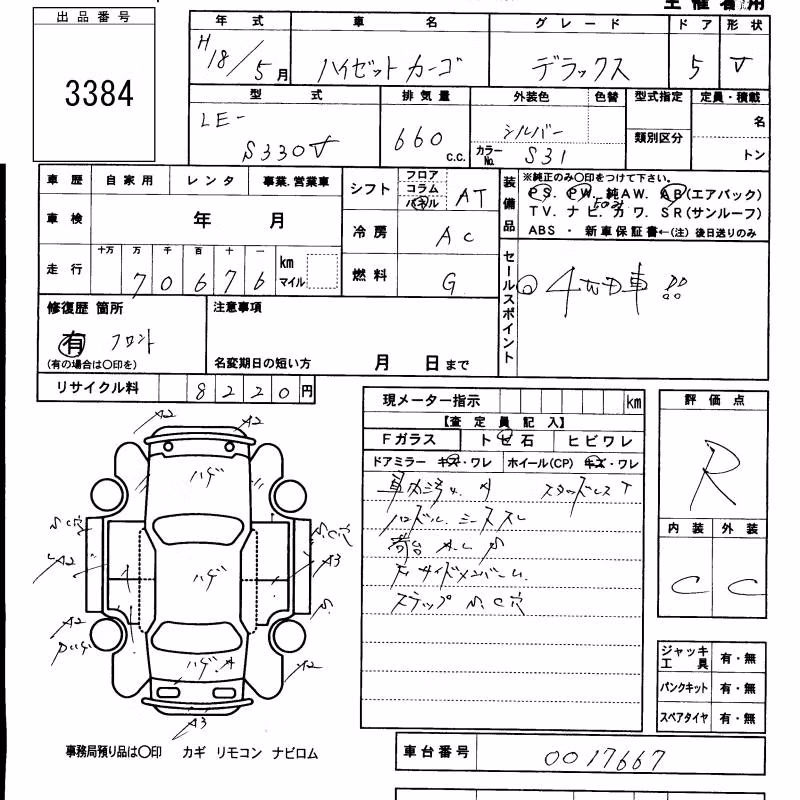 出品番号
3384
年式 車名 グレード ドア 形状
H18/5月 ハイゼットカーゴ デラックス 5 V
型式 排気量 外装色 色替 型式指定 定員・積載
LE-
S330V 660 c.c. シルバー カラーNo. S31 類別区分 名 トン
車歴 自家用 レンタ 事業.営業車
車検 年 月
走行 十万 万 千 百 十 一
70676 km マイル
シフト フロア コラム パネル AT
冷房 AC
燃料 G
装備品 ※純正のみ〇印をつけて下さい。
PS. PW. 純AW. AB(エアバック)
TV. ナビ. カワ. SR(サンルーフ)
ABS ・ 新車保証書←(注) 後日送りのみ
セールスポイント
4WD車!!
修復歴 箇所
有 フロント
(有の場合は〇印を)
注意事項
名変期日の短い方 月 日まで
リサイクル料 8220円
現メーター指示 km
【査定員記入】
Fガラス トビ石 ヒビワレ
ドアミラー キズ・ワレ ホイール(CP) キズ・ワレ
車内汚れ スタッドレスT
ハンドル シーススレ
荷台
Fサイドメンバー
ステップ S.C穴
評価点
R
内装 外装
C C
ジャッキ工具 有・無
パンクキット 有・無
スペアタイヤ 有・無
A2 A2
ハゲ
S.C穴 S.C穴
A2 A3
ハゲ
A2 S
ハゲ.A A2
A3
事務局預り品は〇印 カギ リモコン ナビロム
車台番号 0017667